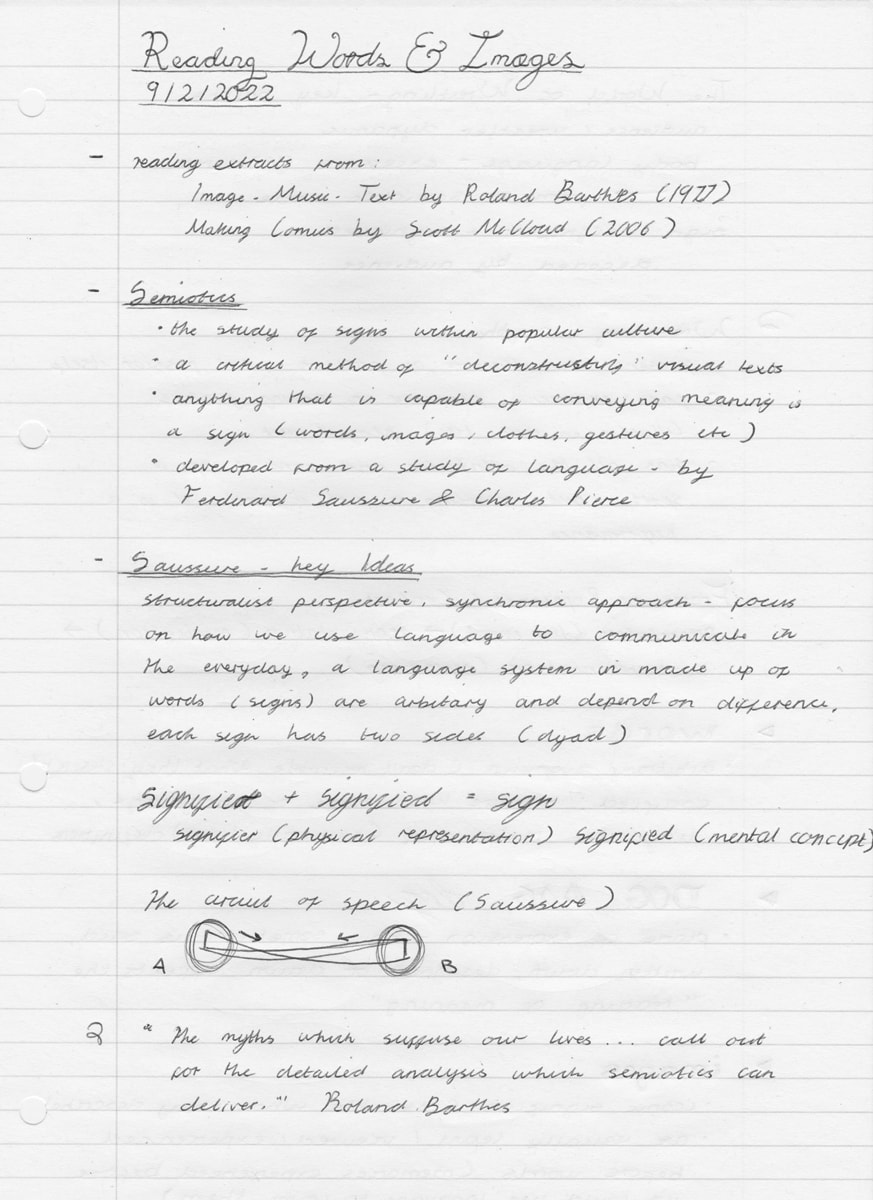 Reading Words & Images
9/2/2022
- reading extracts from:
Image - Music - Text by Roland Barthes (1977)
Making Comics by Scott McCloud (2006)
- Semiotics
• the study of signs within popular culture
• a critical method of "deconstructing" visual texts
• anything that is capable of conveying meaning is
a sign (words, images, clothes, gestures etc)
• developed from a study of language - by
Ferdinard Saussure & Charles Pierce
- Saussure - key Ideas
structuralist perspective, synchronic approach - focus
on how we use language to communicate in
the everyday, a language system in made up of
words (signs) are arbitary and depend on difference,
each sign has two sides (dyad)
Signifier + Signified = sign
signifier (physical representation) Signified (mental concept)
The circuit of speech (Saussure)
A B
2 " The myths which suffuse our lives... call out
for the detailed analysis which semiotics can
deliver." Roland Barthes